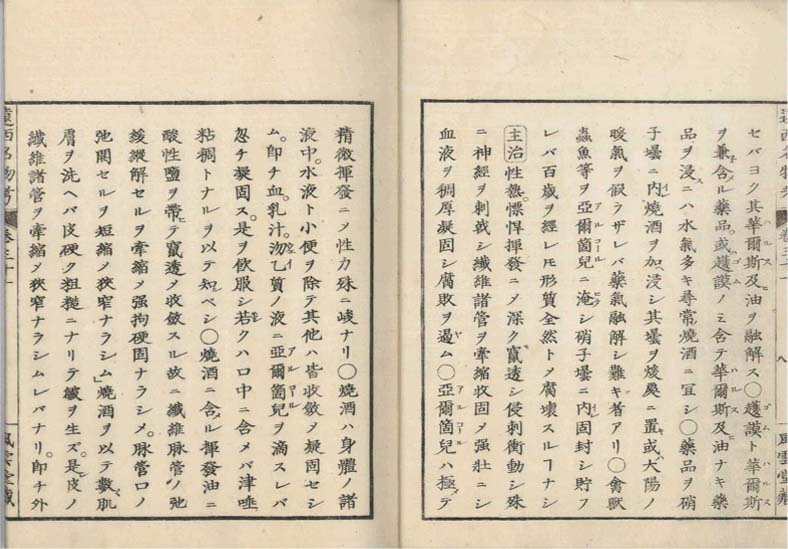 セバヨク其華爾斯及油ヲ融解ス〇護謨ト華爾斯
ヲ兼含ル藥品或護謨ノミ含テ華爾斯及油ナキ藥
品ヲ浸ニハ水氣多キ尋常燒酒ニ宜シ〇藥品ヲ硝
子壜ニ内燒酒ヲ加浸シ其壜ヲ煖處ニ置或大陽ノ
暖氣ヲ假ラザレバ藥氣融解シ難キ者アリ〇禽獸
蟲魚等ヲ亞爾箇兒ニ淹シ硝子壜ニ内固封シ貯フ
レバ百歲ヲ經レ𪜈形質全然トメ腐壞スルヿナシ
主治 性熱慓悍揮發ニメ深ク竄透シ侵刺衝動シ殊
ニ神經ヲ刺戟シ纖維諸管ヲ牽縮收固メ强壯ニシ
血液ヲ稠厚凝固シ腐敗ヲ遏ム〇亞爾箇兒ハ極テ
精微揮發ニメ性力殊ニ峻ナリ〇燒酒ハ身體ノ諸
液中水液ト小便ヲ除テ其他ハ皆收斂メ凝固セシ
ム即チ血乳汁沕乙質ノ液ニ亞爾箇兒ヲ滴スレバ
忽チ凝固ス是ヲ飮服シ若クハ口中ニ含メバ津唾
粘稠トナルヲ以テ知ベシ〇燒酒ニ含ル揮發油ニ
酸性鹽ヲ帶テ竄透メ收斂スル故ニ纖維脉管ノ弛
緩縱解セルヲ牽縮メ强拘硬固ナラシメ脉管口ノ
弛開セルヲ短縮メ狹窄ナラシム燒酒ヲ以テ數肌
膚ヲ洗ヘバ皮硬ク粗糙ニナリテ皺ヲ生ズ是皮ノ
纖維諸管ヲ牽縮メ狹窄ナラシムレバナリ即チ外
遠西名物考
卷三十一
八
風雲堂藏